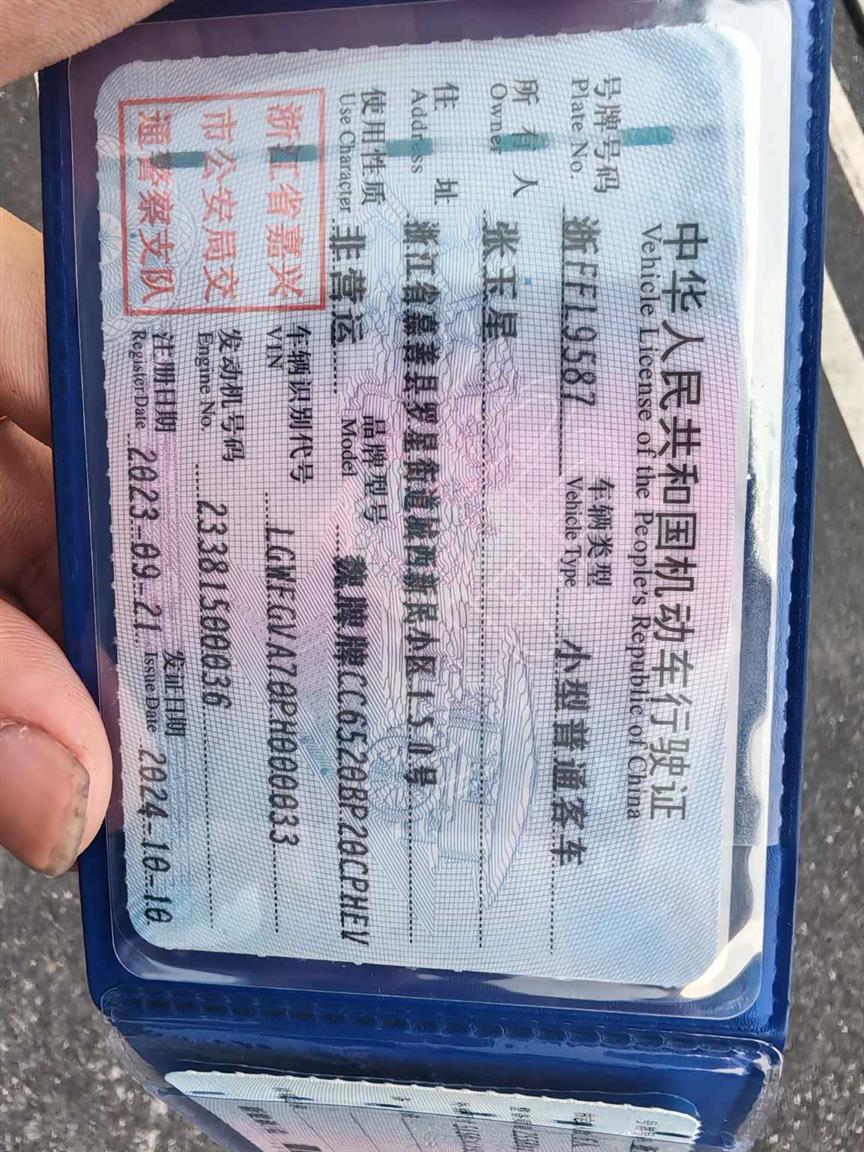 中华人民共和国机动车行驶证
Vehicle License of the People's Republic of China
号牌号码 浙FFL9587 车辆类型 小型普通客车
Plate No. Vehicle Type
所有人 张玉星
Owner
住址 浙江省嘉善县罗星街道城西新民小区150号
Address
使用性质 非营运 品牌型号 魏牌牌CC6520BP20CPHEV
Use Character Model
浙江省嘉兴
市公安局交
通警察支队
车辆识别代号 LGWFGVA70PH000033
VIN
发动机号码 23381500036
Engine No.
注册日期 2023-09-21 发证日期 2024-10-10
Register Date Issue Date